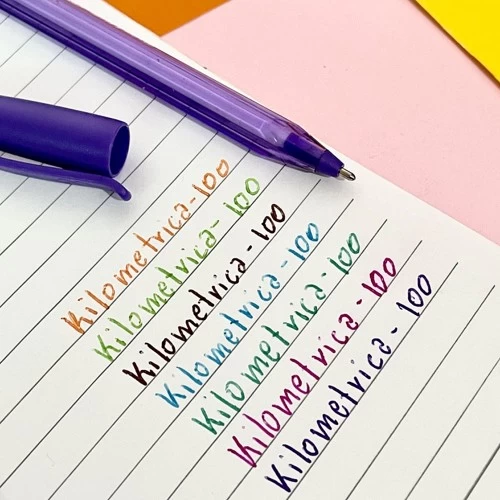 Kilometrica-100
Kilometrica-100
Kilometrica-100
Kilometrica-100
Kilometrica-100
Kilometrica-100
Kilometrica-100